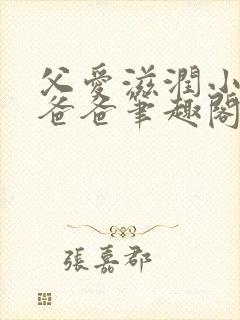 父愛滋潤小
爸爸筆趣閣
張嘉郡